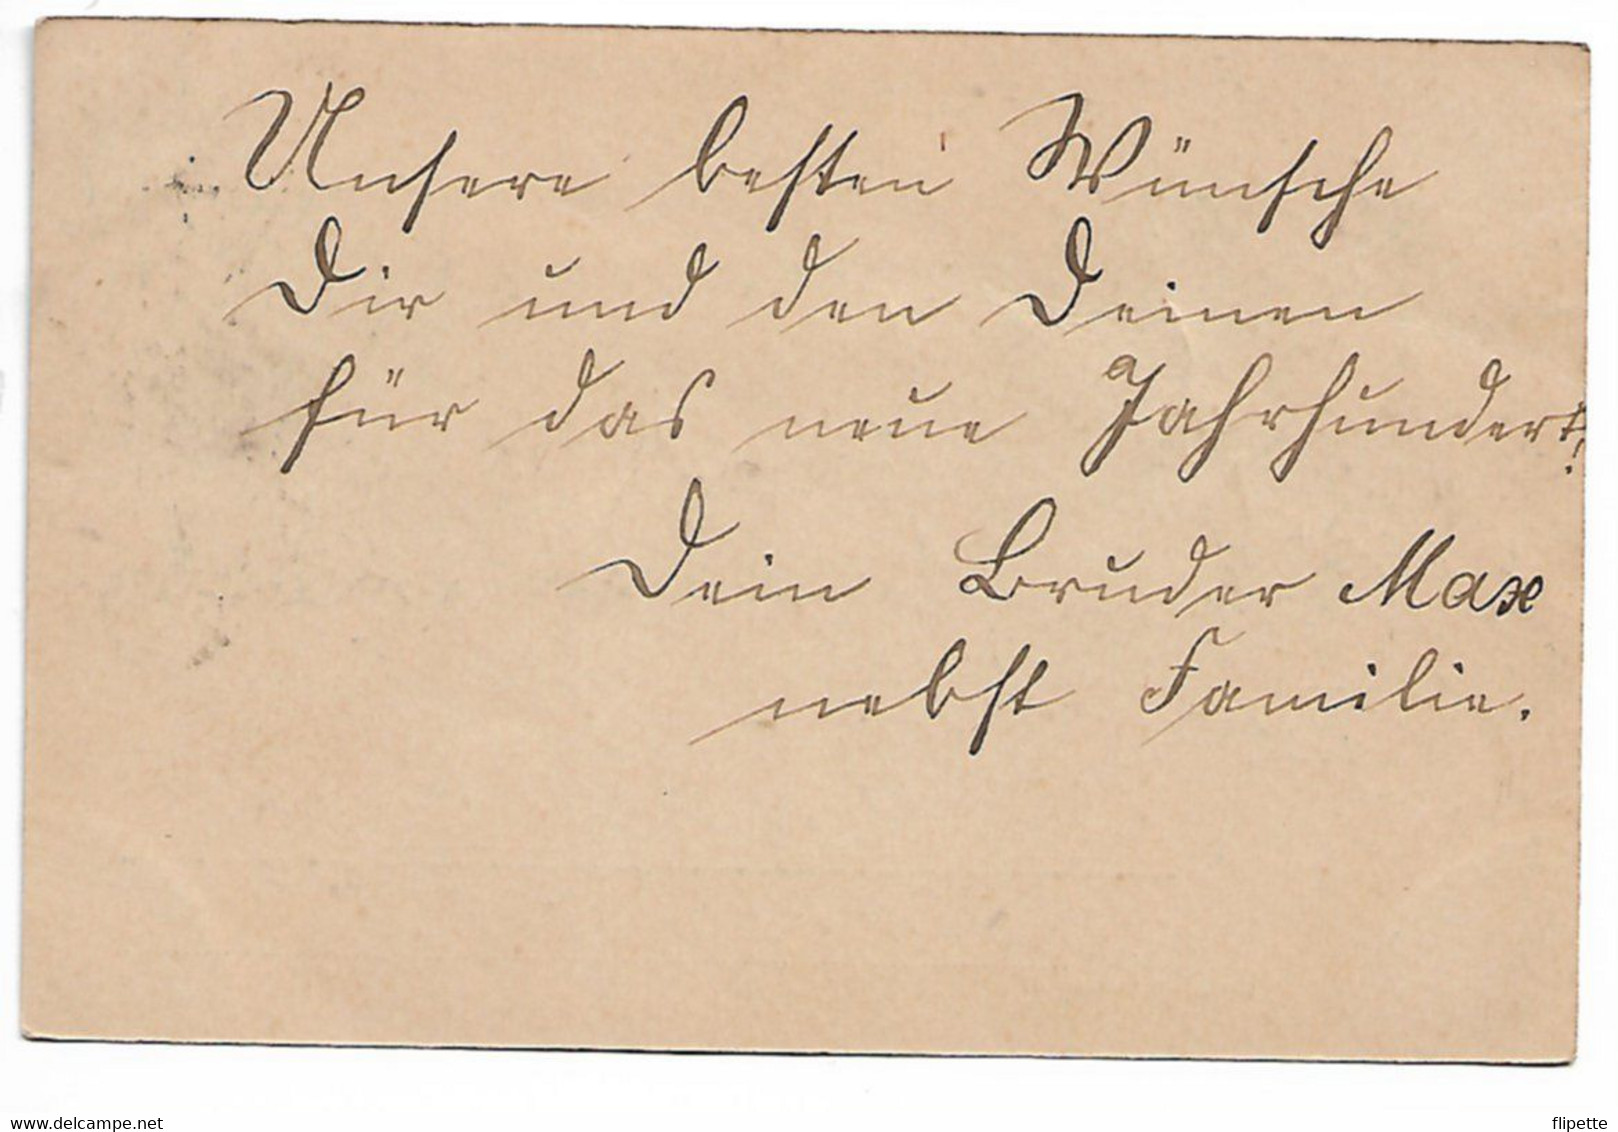 Unsere besten Wünsche
Dir und den Deinen
für das neue Jahrhundert!
Dein Bruder Max
nebst Familie.
www.delcampe.net
flipette